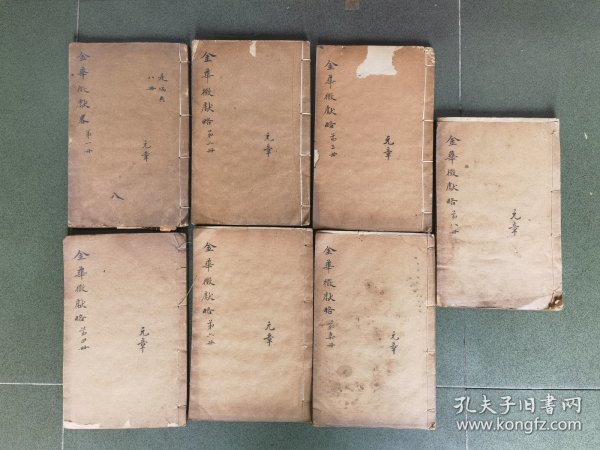 金華徵獻畧 第一册
八册
元章
八
金華徵獻略 第二册
元章
金華徵獻略 第三册
元章
金華徵獻略 第四册
元章
金華徵獻略 第六册
元章
金華徵獻略 第柒册
元章
金華徵獻略 第八册
元章
孔夫子旧书网
www.kongfz.com